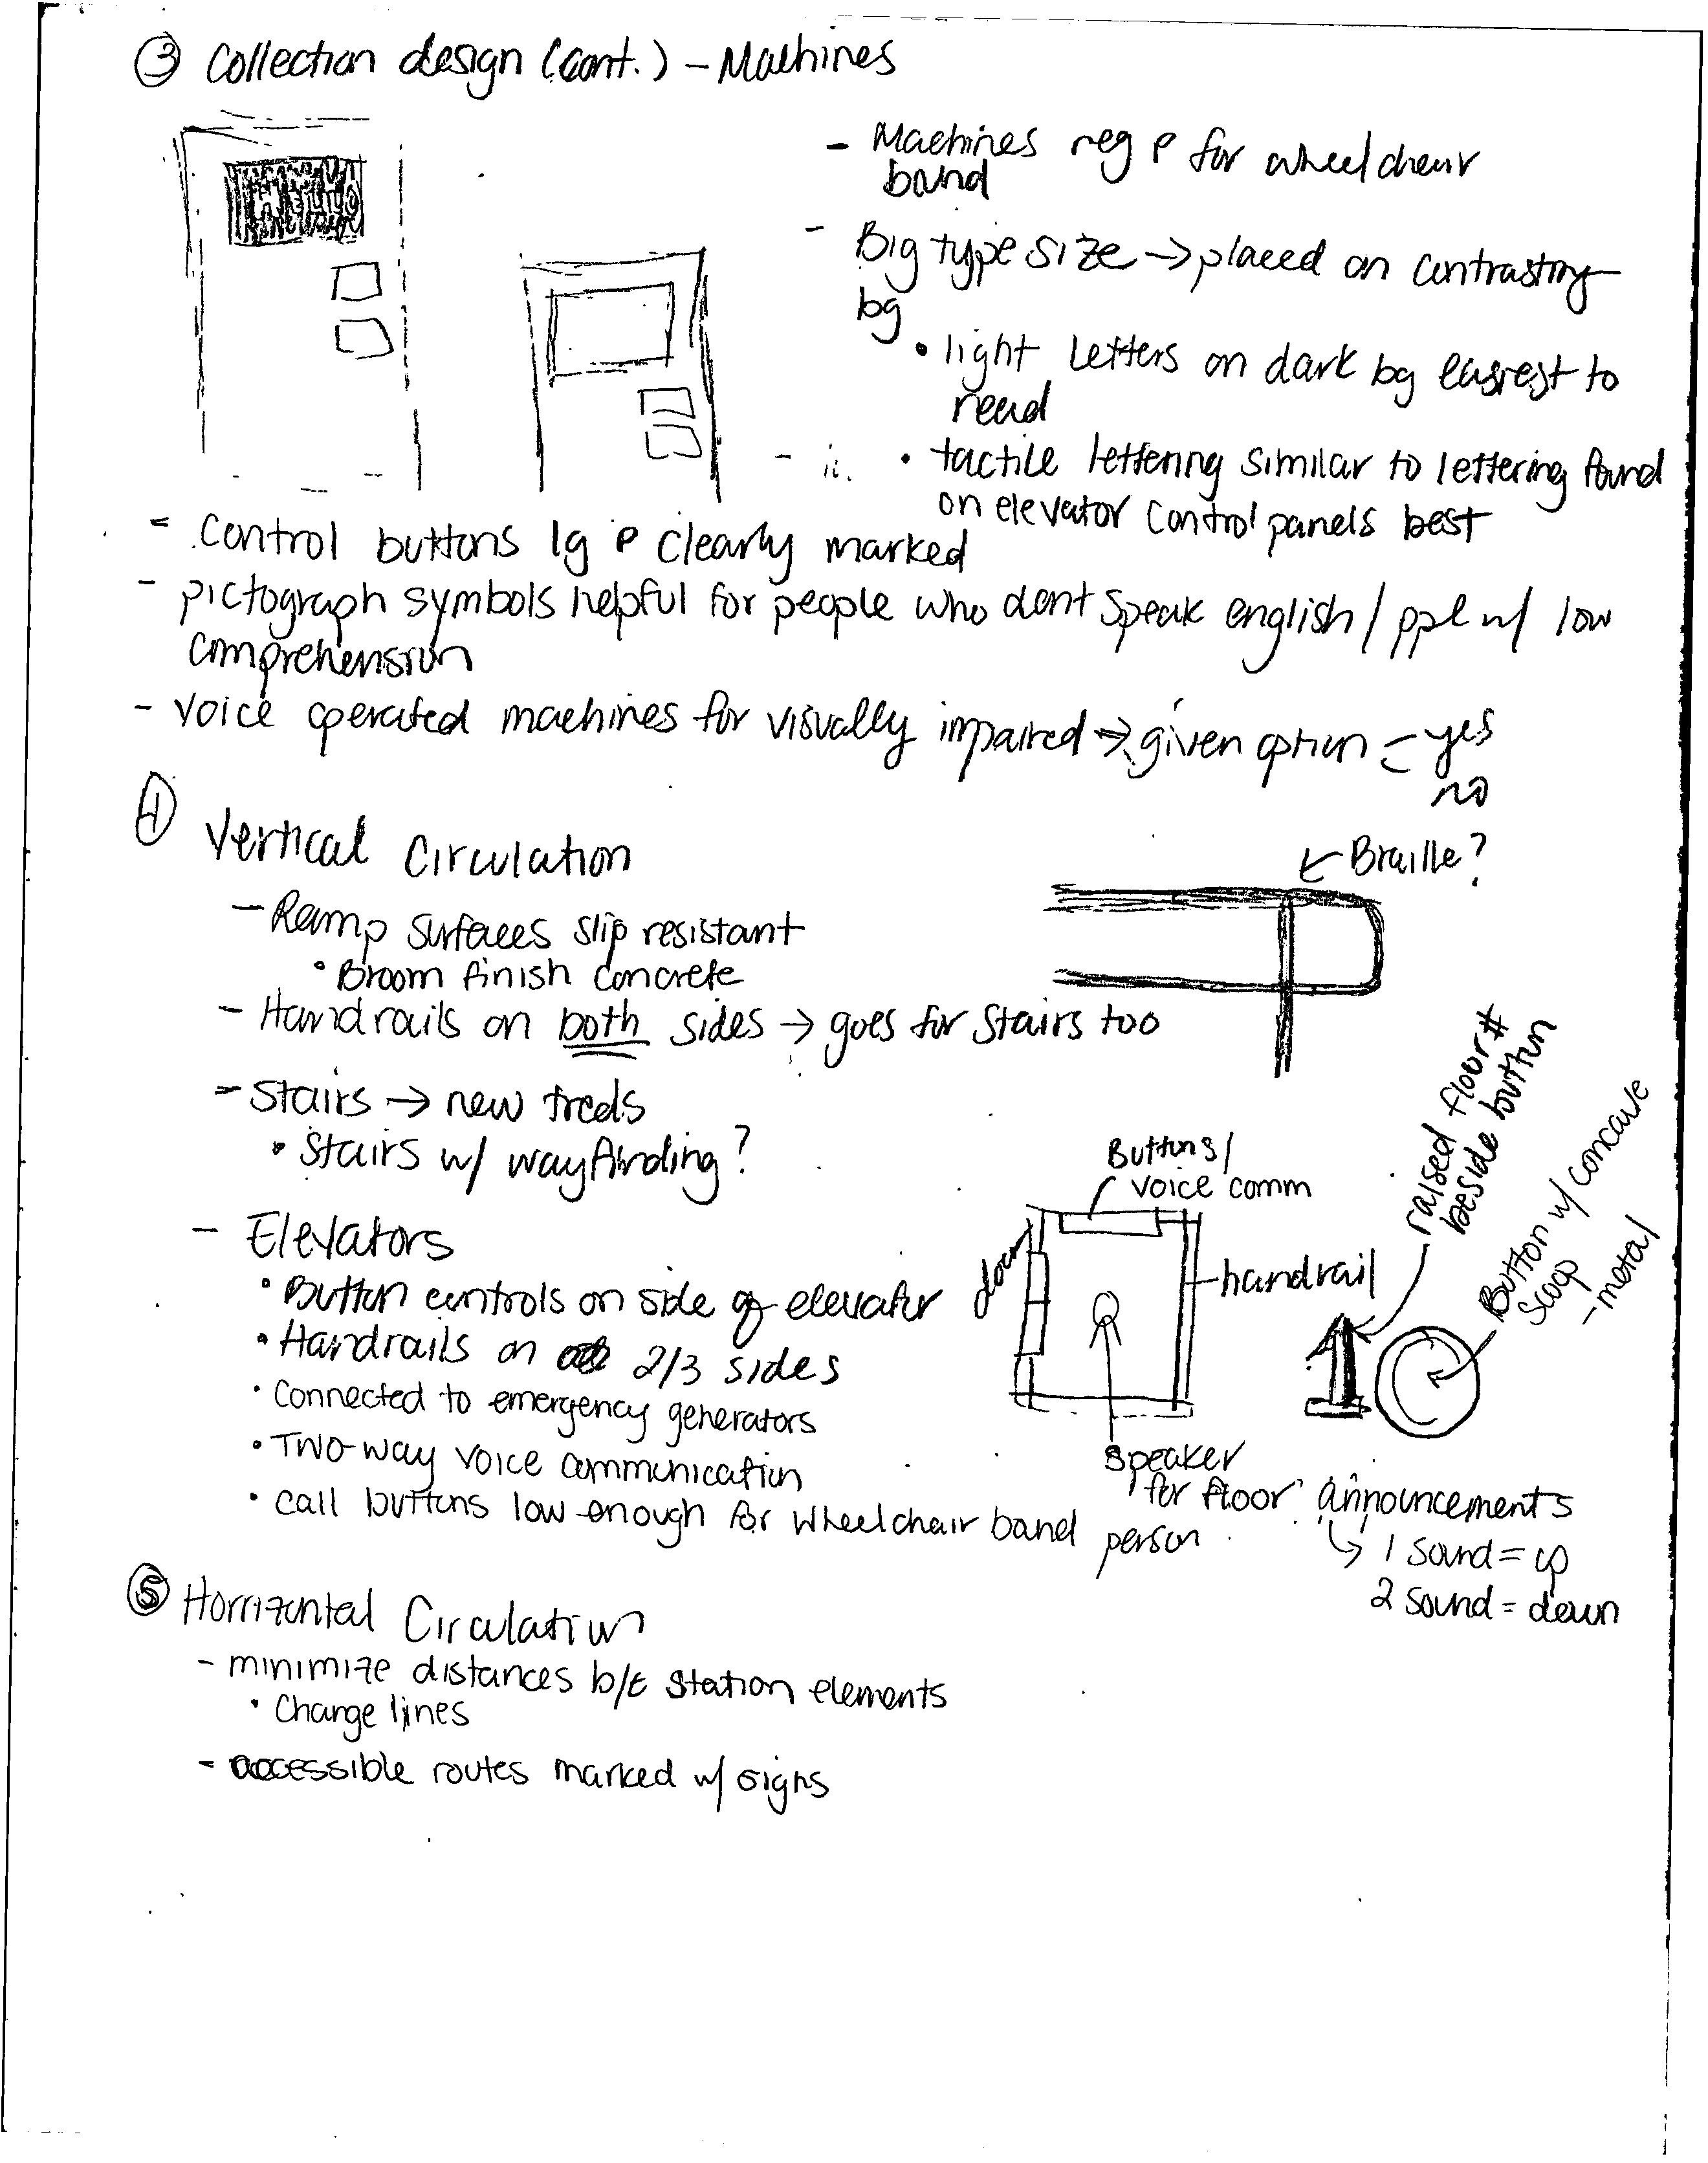 ③ Collection design (cont.) - Machines
HELLO
- Machines reg & for wheelchair
band
- Big type size → placed on contrasting
bg
• light letters on dark bg easiest to
read
• tactile lettering similar to lettering found
on elevator control panels best
- control buttons lg & clearly marked
- pictograph symbols helpful for people who dont speak english / ppl w/ low
comprehension
- voice operated machines for visually impaired → given option = yes
no
④ Vertical Circulation
← Braille?
- Ramp surfaces slip resistant
• Broom finish concrete
- Handrails on both sides → goes for stairs too
- Stairs → new treds
• Stairs w/ wayfinding?
- Elevators
• Button controls on side of elevator
• Handrails on 2/3 sides
• Connected to emergency generators
• Two-way voice communication
• call buttons low enough for wheelchair band person
Buttons/
voice comm
door
handrail
speaker
for floor announcements
↳ 1 sound = up
2 sound = down
raised floor #
beside button
1
Button w/ concave
scoop
- metal
⑤ Horrizontal Circulation
- minimize distances b/t station elements
• Change lines
- accessible routes marked w/ signs